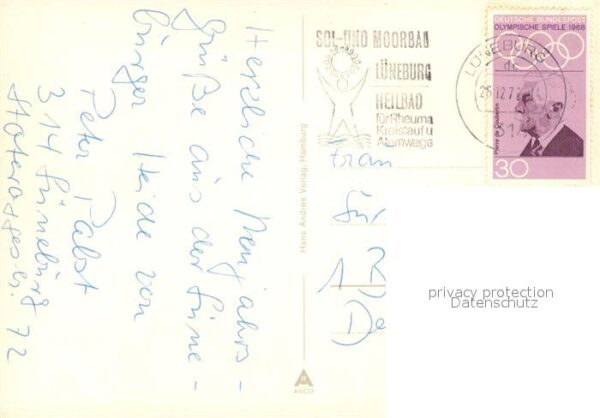 Herzliche Neujahrs-
grüße aus der Lüne-
burger Heide von
Peter Pabst
314 Lüneburg
72
Hans Andres Verlag, Hamburg
ANCO
SOL- UND MOORBAD
LÜNEBURG
HEILBAD
für Rheuma
Kreislauf u
Atemwege
LÜNEBURG
DEUTSCHE BUNDESPOST
OLYMPISCHE SPIELE 1968
Pierre de Coubertin
30
Frau
1
D
privacy protection
Datenschutz